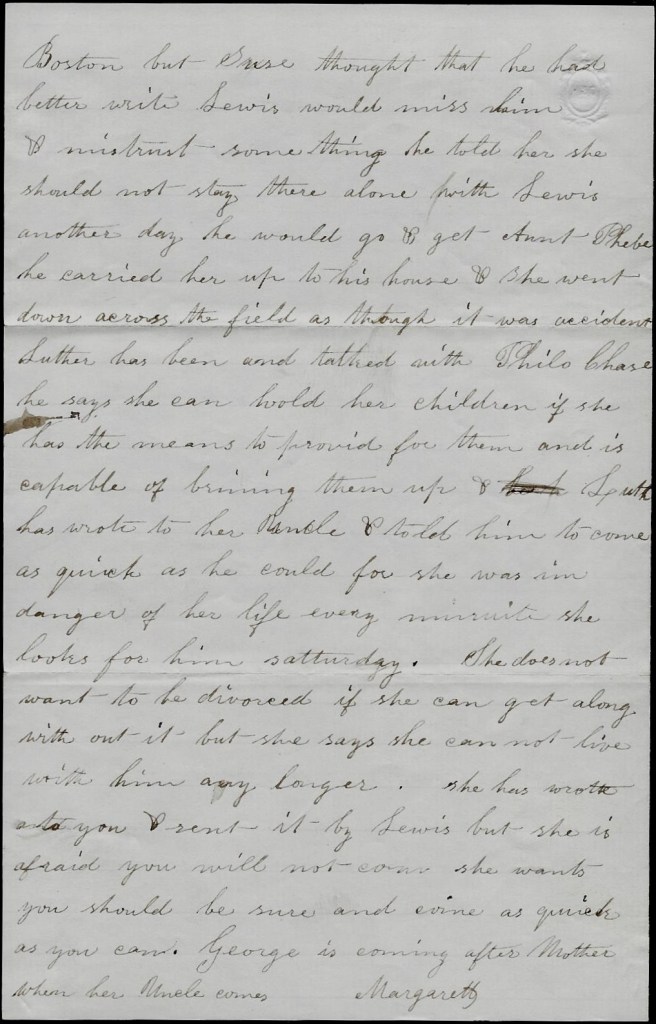 Boston but Suse thought that he had
better write Lewis would miss him
& mistrust some thing he told her she
should not stay there alone with Lewis
another day he would go & get Aunt Phebe
he carried her up to his house & she went
down across the field as though it was accident
Luther has been and talked with Philo Chase
he says she can hold her children if she
has the means to provid for them and is
capable of brining them up & Luth
has wrote to her Uncle & told him to come
as quick as he could for she was in
danger of her life every minuite she
looks for him satturday. She does not
want to be divorced if she can get along
with out it but she says she can not live
with him any longer. she has wrote
to you & sent it by Lewis but she is
afraid you will not com she wants
you should be sure and come as quick
as you can. George is coming after Mother
when her Uncle comes Margarett